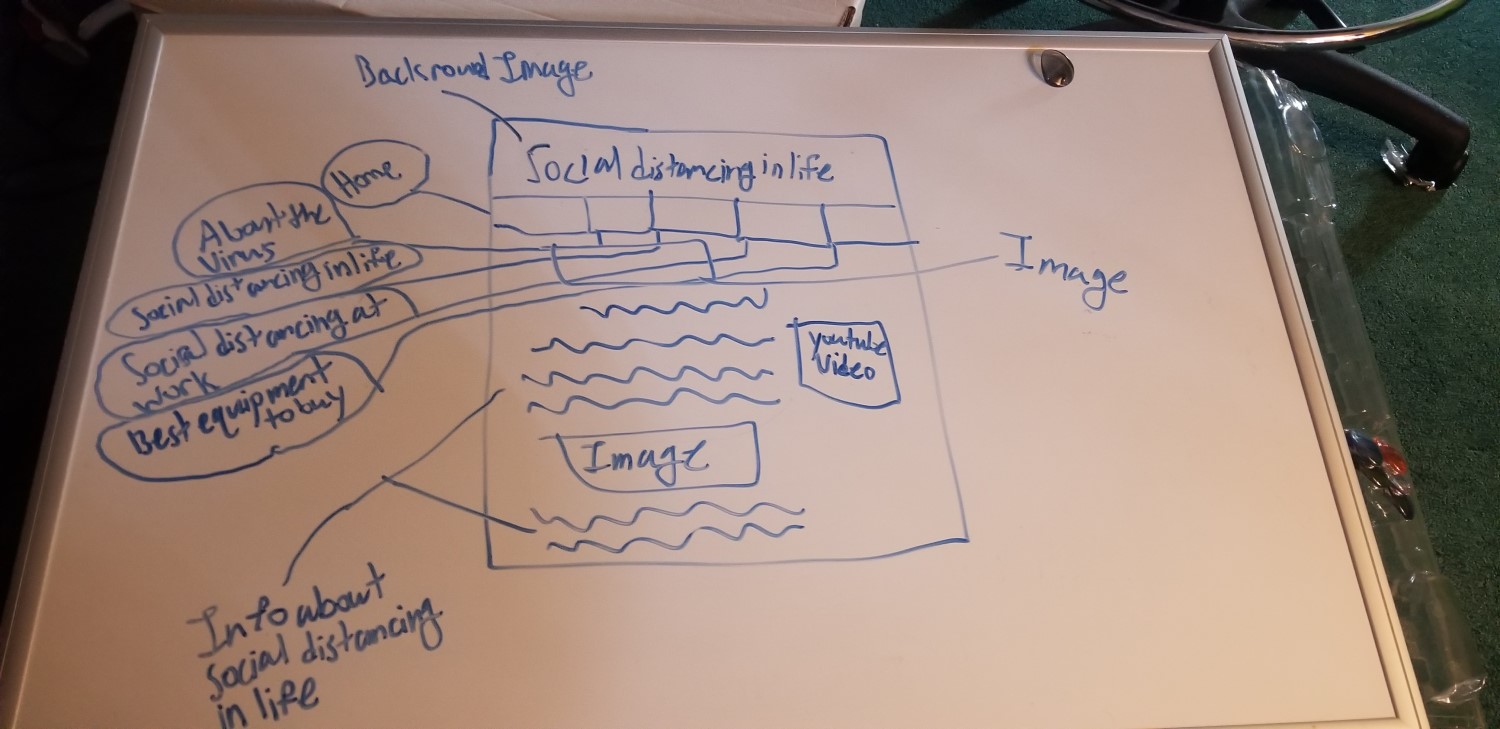 Backround Image
Social distancing in life
Home
About the
Virus
Social distancing in life
Social distancing at
work
Best equipment
to buy
Image
youtube
Video
Image
Info about
social distancing
in life